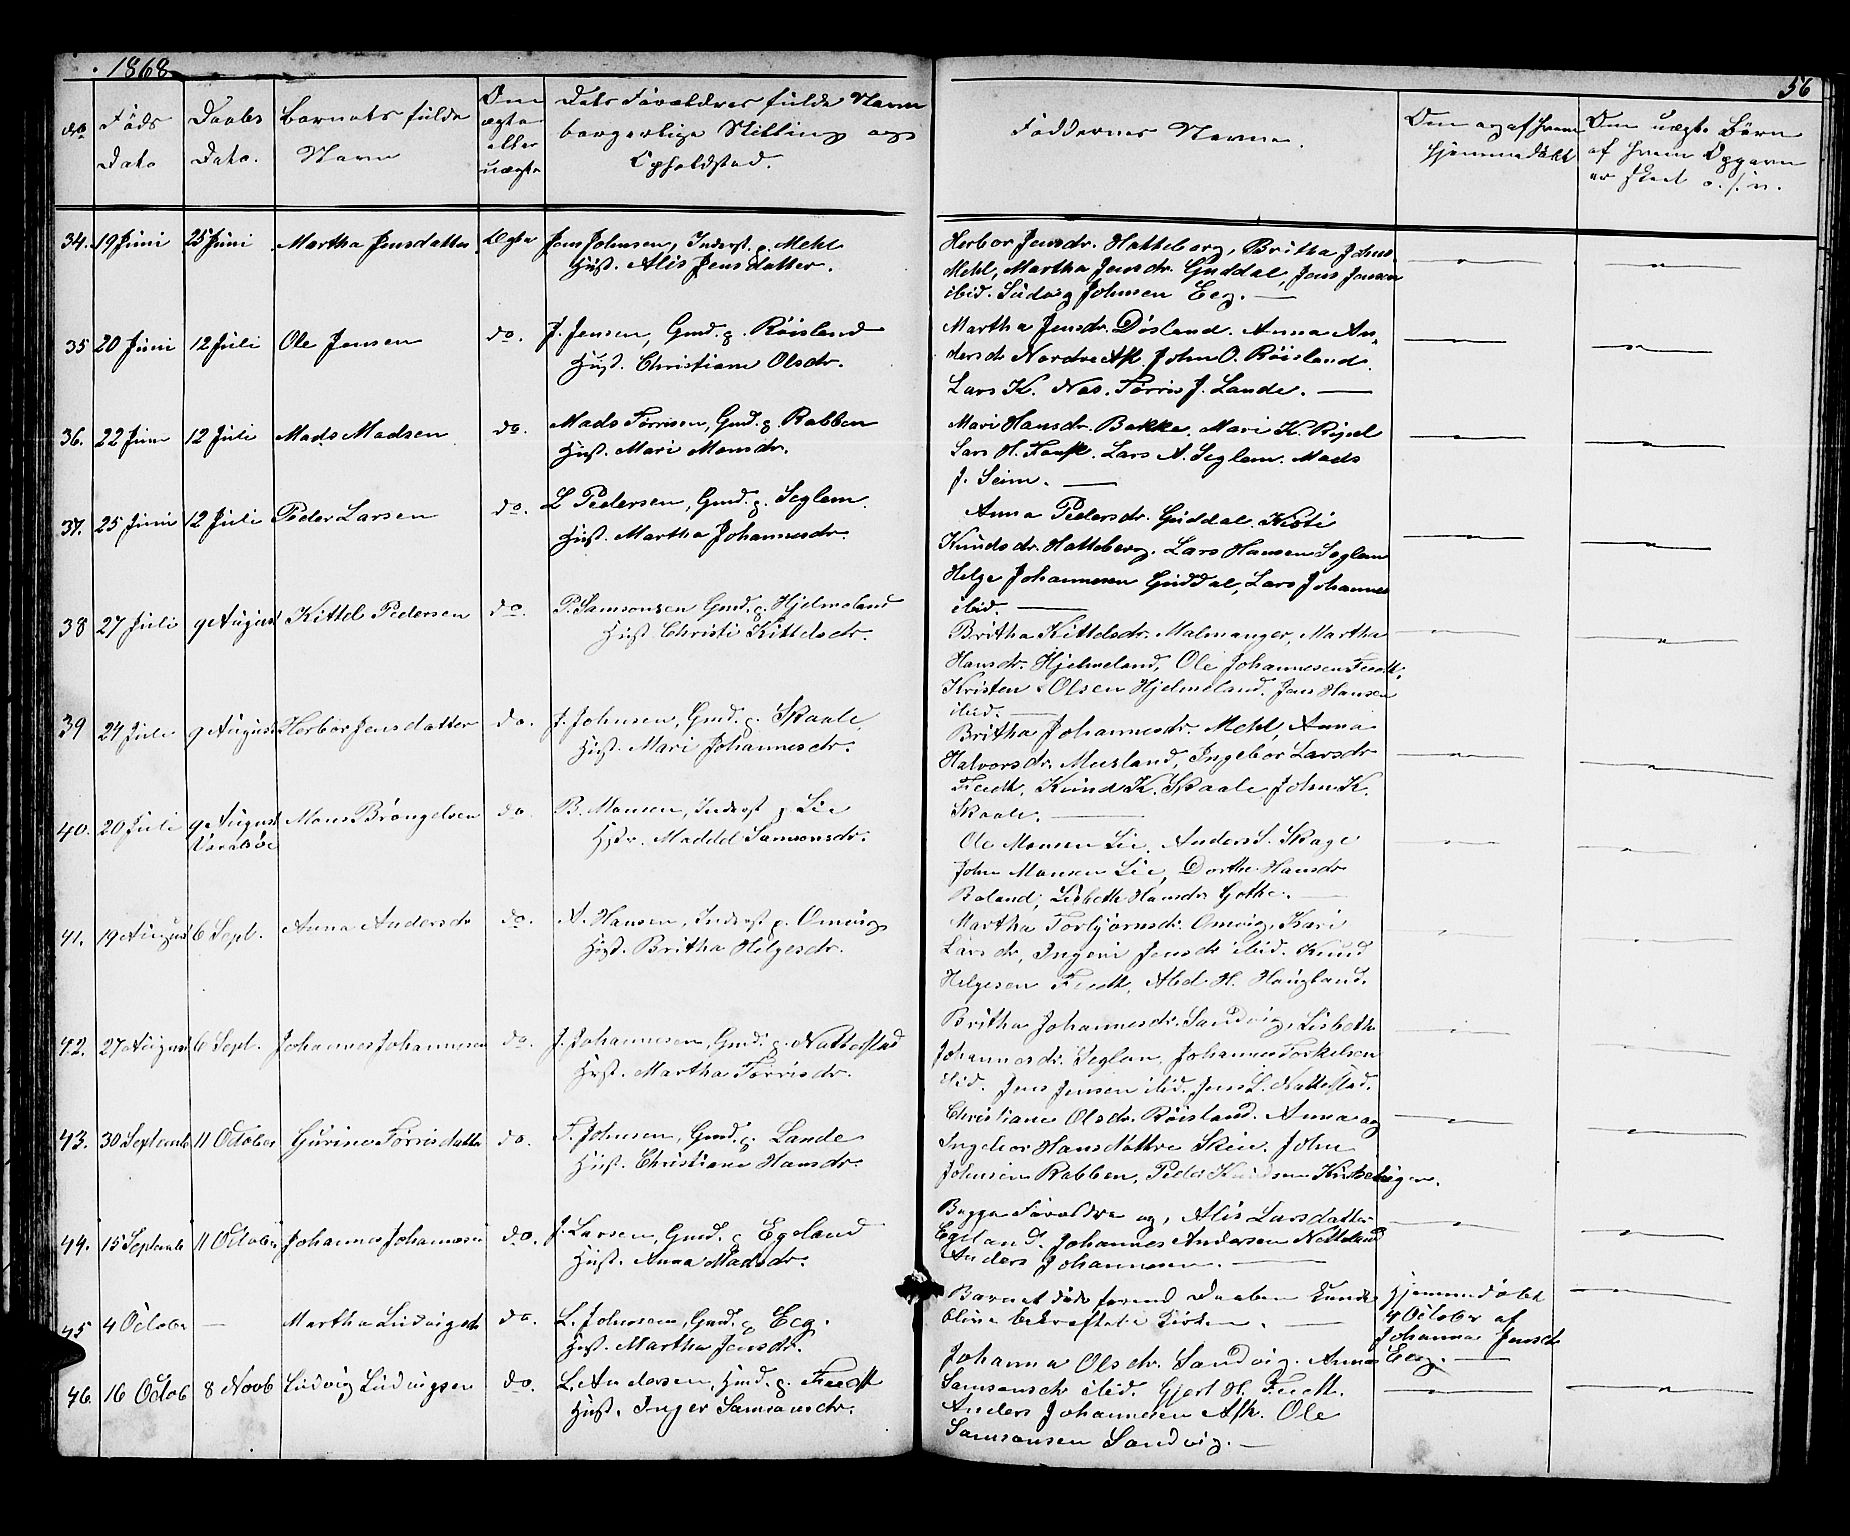 1868
56
No
Føds
Dato
Daabs
Dato.
Barnets fulde
Navn
Om
ægte
eller
uægte
Dets Forældres fulde Navn
borgerlige Stilling og
Opholdsted.
Faddernes Navne.
Om og af hvem
hjemmedøbt
Om uægte Børn
af hvem Opgaven
er skeet o.s.v.
34. 19 Juni 25 Juni Martha Jensdatter Ægte Jens Johnsen, Inderst. p. Mehl
Hust. Alis Jensdatter.
Herbor Jensdr. Hatteberg, Britha Johns
Mehl, Martha Jensdr. Guddal, Jens Jensen
ibid. Ludvig Johnsen Eeg. —
35 20 Juni 12 Juli Ole Jensen do. J. Jensen, Gmd. p. Røisland
Hust. Christiane Olsdr.
Martha Jensdr. Døsland. Anna An-
dersdr. Nordre Ask. John O. Røisland.
Lars K. Nes. Tørris J. Lande. —
36. 22 Juni 12 Juli Mads Madsen do. Mads Tørrisen, Gmd. p. Rabben
Hust. Mari Monsdr.
Mari Hansdr. Bakke. Mari K.
Lars H. Lars A. Seglem. Mads
J. Seim. —
37. 25 Juni 12 Juli Peder Larsen do. L Pedersen, Gmd. p. Seglem.
Hust. Martha Johannesdr.
Anna Pedersdr. Guddal. Kisti
Knudsdr. Hatteberg. Lars Hansen Seglem
Helge Johannesen Guddal, Lars Johannes
ibid. —
38 27 Juli 9 August Kittel Pedersen do. P. Samsonsen Gmd. p. Hjelmeland
Hust. Christi Kittelsdr.
Britha Kittelsdr. Malmanger, Martha
Hansdr. Hjelmeland, Ole Johannesen
Kristen Olsen Hjelmeland. Jens Hansen
ibid. —
39 24 Juli 9 August Herbor Jensdatter do. J. Johnsen, Gmd. p. Skaale,
Hust. Mari Johannesdr.
Britha Johannesdr. Mehl, Anna
Halvorsdr. Ingebor Larsdr
Knud K. Skaale John K.
Skaale. —
40. 20 Juli 9 August
Varalsøe
Mons Brøngelsen do B. Monsen, Inderst p Lie
Hstr. Maddel Samsonsdr.
Ole Monsen Lie, Anders S. Skage
John Monsen Lie, Dorthe Hansdr
Boland, Lisbeth Hansdr Gothe. —
41. 19 August 6 Sept. Anna Andersdr do. A. Hansen, Inderst p. Omvig
Hust. Britha Helgesdr.
Martha Torbjørnsdr. Omvig, Kari
Larsdr, Ingeri Jensdr ibid. Knud
Helgesen Abel H. Haugland.
42. 27 August 6 Sept. Johannes Johannesen do. J. Johannesen, Gmd. p. Nattestad
Hust. Martha Tørrisdr.
Britha Johannesdr. Sandvig, Lisbeth
Johannesdr. Seglem, Johannes Torkelsen
ibid. Jens Jensen ibid. Jens L. Nattestad.
43. 30 Septemb 11 October Gurine Tørrisdatter do. T. Johnsen, Gmd. p. Lande
Hust. Christiane Hansdr.
Christiane Olsdr. Røisland. Anna og
Ingebor Hansdøttre Skeie. John
Johnsen Rabben, Peder Knudsen
44. 15 Septemb 11 October Johannes Johannesen do. J. Larsen, Gmd. p Egeland
Hust. Anna Madsdr.
Begge Forældre og, Alis Larsdatter
Egeland. Johannes Andersen
Anders Johannesen. —
45 4 October — Martha Ludvigsdr do. L. Johnsen, Gmd. p Eeg.
Hust. Martha Jensdr.
Barnet døde førend Daaben kunde
blive bekræftet i Kirken. —
Hjemmedøbt
4 October af
Johanna Jensdr
Eeg. —
46. 16 Octob 8 Novb Ludvig Ludvigsen do. L. Andersen, Hmd. p.
Hust. Inger Samsonsdr.
Johanna Olsdr. Sandvig. Anna
Samsonsdr ibid. Gjert H.
Anders Johannesen Ask. Ole
Samsonsen Sandvig. —